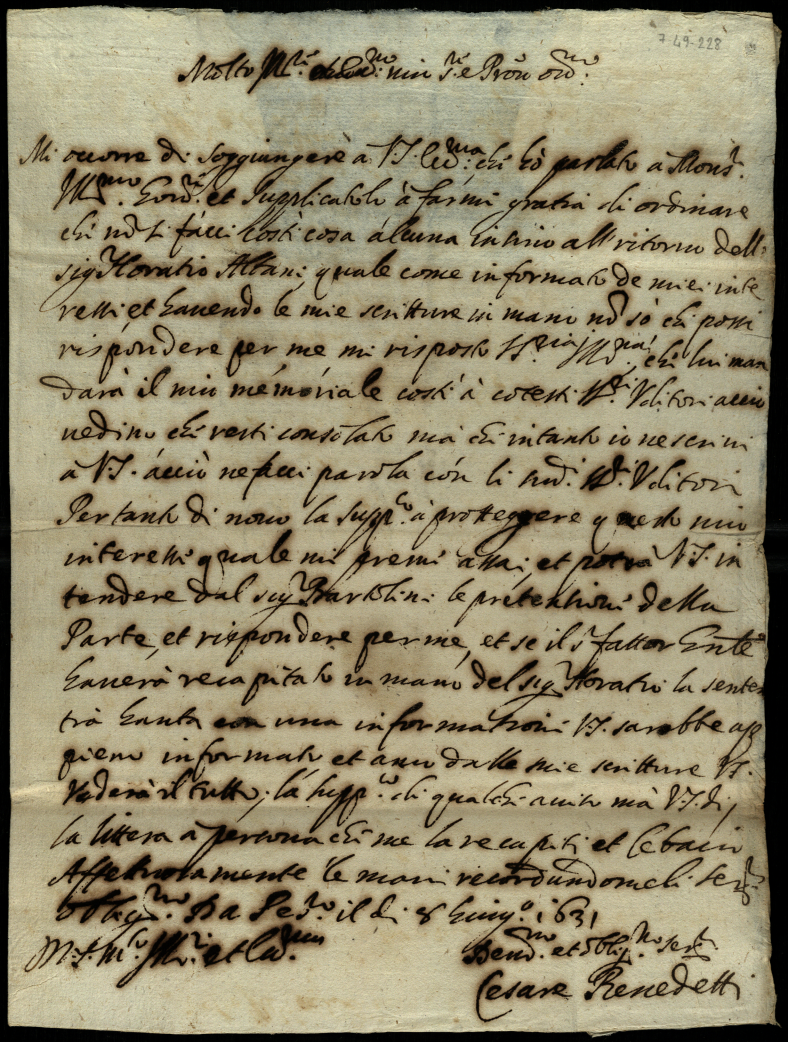 7-49-228
Molto Ill.re et mio S.re e Pron oss.mo
Mi occorre di soggiungere à V.S. Ecc.ma che hò parlato à Mons.r
Ill.mo Gov.re et supplicatolo à farmi gratia di ordinare
che nō si facci costì cosa alcuna insino all ritorno dell
sig.r Horatio Albani, quale come informato de miei inte
ressi, et havendo le mie scritture in mano nō sò chi possi
rispondere per me mi rispose S.S.ria Ill.ma, che lui man
darà il mio memoriale costì à cotesti SS.ri Uditori acciò
vedino che resti consolato mà che intanto io ne scrivi
à V.S. acciò ne facci parola con li sud.i SS.ri Uditori
Pertanto di novo la supp.co à proteggere questo mio
interesse quale mi preme assai, et potrà V.S. in
tendere dal sig.r Bartolini le pretensioni della
Parte, et rispondere per me, et se il s.r fattor
haverà recapitato in mano del sig.r Horatio la senten
tia havuta con una informatione V.S. sarebbe ap
pieno informato et anco dalle mie scritture V.S.
vederà il tutto, la supp.co di qualche aviso mà V.S. di
la littera à persona che me la recapiti et le bacio
Affettuosamente le mani recordandomeli ser.re
oblig.mo Da Pes.ro il di 8 Giug.o 1631
D.V.S. m.to Ill.re et Ecc.ma
Dev.mo et oblig.mo ser.re
Cesare Benedetti